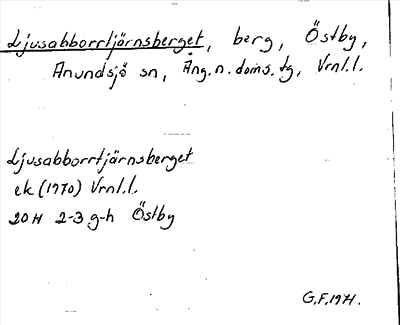 Ljusabborrtjärnsberget, berg, Östby,
Anundsjö sn, Ång.n.doms.tg, Vrnl.l.
Ljusabborrtjärnsberget
ek (1970) Vrnl.l.
20H 2-3 g-h Östby
G.F. 1971.